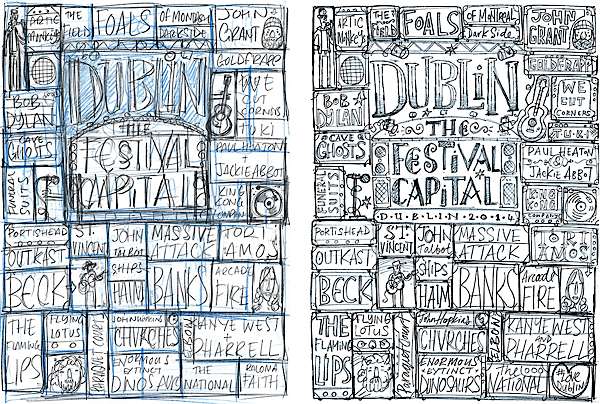 ARTIC
MONKEYS
THE
FIELD
FOALS
OF MONTREAL
DARKSIDE
JOHN
GRANT
GOLDFRAPP
DUBLIN
BOB
DYLAN
WE
CUT
CORNERS
T.U.K.I
THE
CAVE
GHOSTS
FESTIVAL
CAPITAL
PAUL HEATON
+
JACKIE ABBOT
FUNERAL
SUITS
KING
KONG
COMPANY
PORTISHEAD
ST.
VINCENT
JOHN
TALBOT
MASSIVE
ATTACK
TORI
AMOS
OUTKAST
BECK
SHIPS
HAIM
BANKS
ARCADE
FIRE
THE
FLAMING
LIPS
FLYING
LOTUS
PARQUET COURTS
JOHN HOPKINS
CHVRCHES
ELBOW
KANYE WEST
+
PHARRELL
ENORMOUS
EXTINCT
DINOSAURS
THE
NATIONAL
PALOMA
FAITH
ARTIC
MONKEYS
THE
FIELD
FOALS
OF MONTREAL
DarkSide
JOHN
GRANT
GOLDFRAPP
DUBLIN
BOB
DYLAN
WE
CUT
CORNERS
T.U.K.I
THE
CAVE
GHOSTS
FESTIVAL
CAPITAL
PAUL HEATON
&
JACKIE ABBOT
FUNERAL
SUITS
KING
KONG
COMPANY
D·U·B·L·I·N·2·0·1·4
PORTISHEAD
ST.
VINCENT
JOHN
Talbot
MASSIVE
ATTACK
TORI
AMOS
OUTKAST
BECK
SHIPS
HAIM
BANKS
Arcade
FIRE
THE
FLAMING
LIPS
FLYING
LOTUS
Parquet Courts
John Hopkins
CHVRCHES
ELBOW
KANYE WEST
AND
PHARRELL
ENORMOUS
EXTINCT
DINOSAURS
The
NATIONAL
DUBLIN